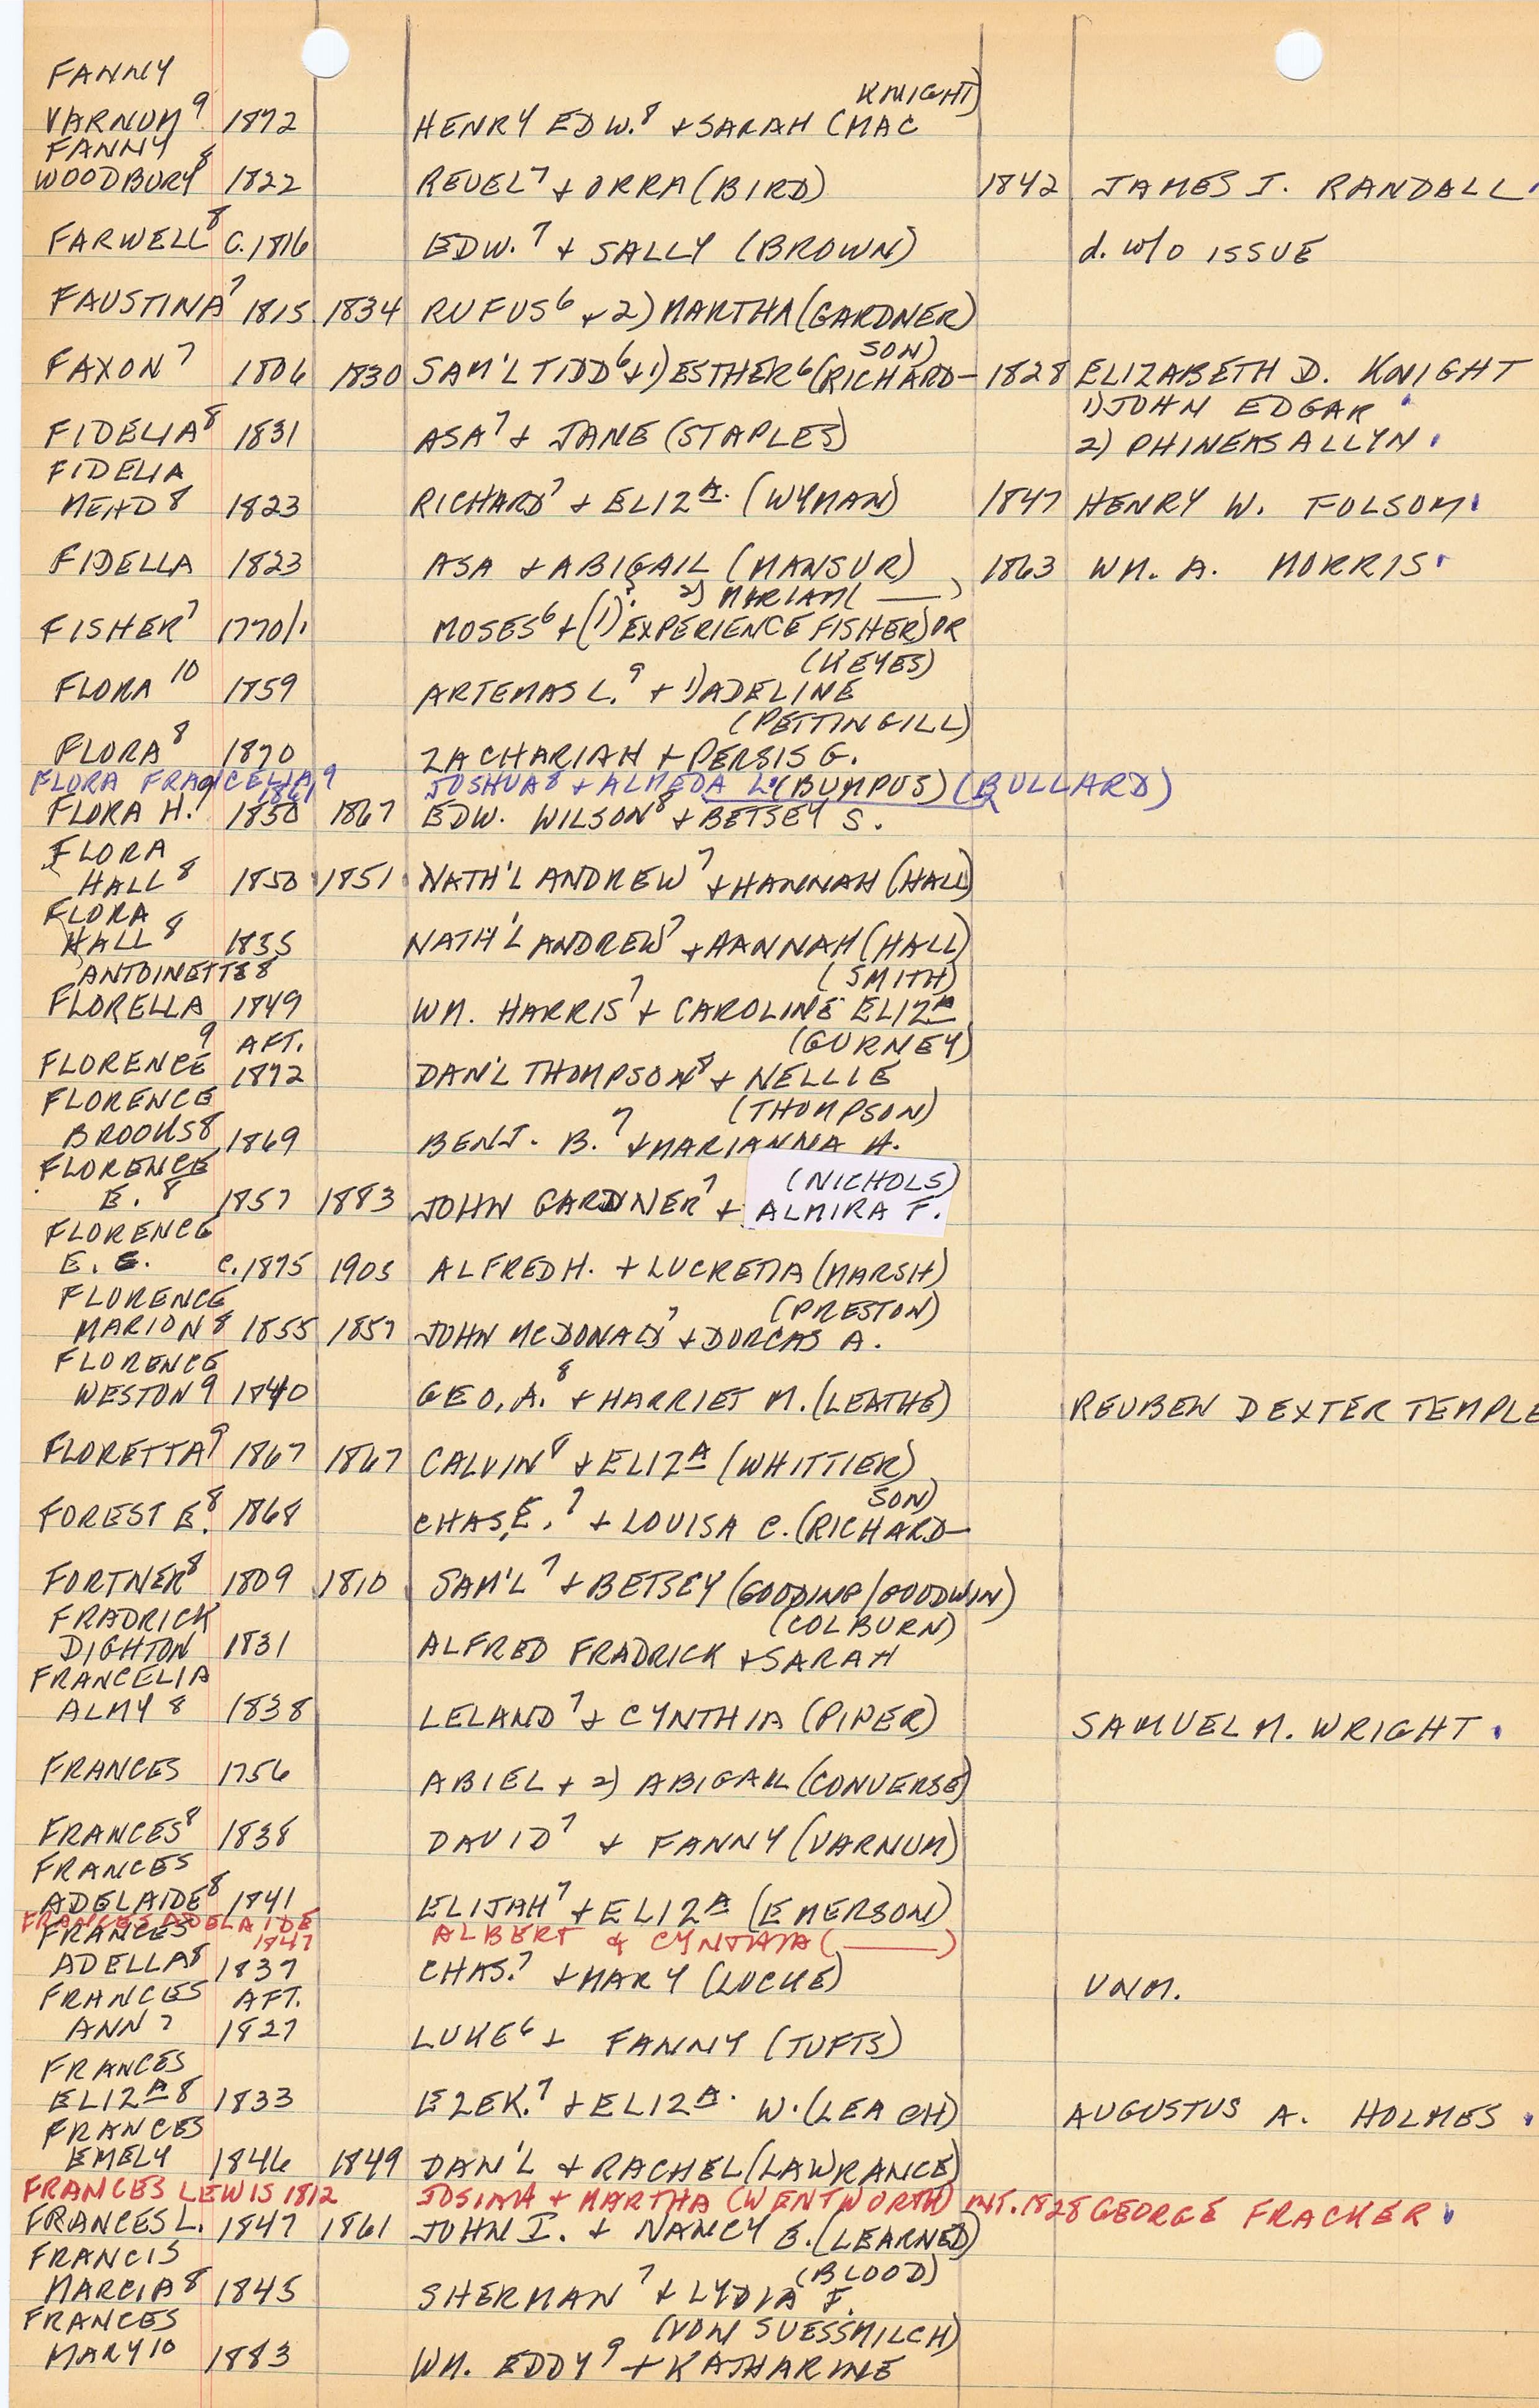 FANNY
KNIGHT)
VARNUM⁹ 1872 HENRY EDW.⁸ + SARAH (MAC
FANNY
WOODBURY⁸ 1822 REUEL⁷ + ORRA (BIRD) 1842 JAMES J. RANDALL
FARWELL⁸ C. 1816 EDW.⁷ + SALLY (BROWN) d. w/o ISSUE
FAUSTINA⁷ 1815 1834 RUFUS⁶ + 2) MARTHA (GARDNER)
SON)
FAXON⁷ 1806 1830 SAM'L TIDD⁶ + 1) ESTHER⁶ (RICHARD- 1828 ELIZABETH D. KNIGHT
1) JOHN EDGAR
FIDELIA⁸ 1831 ASA⁷ + JANE (STAPLES) 2) PHINEAS ALLYN
FIDELIA
MEAD⁸ 1823 RICHARD⁷ + ELIZᴬ. (WYMAN) 1847 HENRY W. FOLSOM
FIDELLA 1823 ASA + ABIGAIL (MANSUR) 1863 WM. A. MORRIS
? 2) MARIAM( ——)
FISHER⁷ 1770/1 MOSES⁶ + (1) EXPERIENCE FISHER) OR
(KEYES)
FLORA¹⁰ 1859 ARTEMAS L.⁹ + 1) ADELINE
(PETTINGILL)
FLORA⁸ 1870 ZACHARIAH + PERSIS G.
FLORA FRANCELIA⁹ 1861 JOSHUA⁸ + ALMEDA L. (BUMPUS) (BULLARD)
FLORA H.⁹ 1850 1867 EDW. WILSON⁸ + BETSEY S.
FLORA
HALL⁸ 1850 1851 NATH'L ANDREW⁷ + HANNAH (HALL)
FLORA
HALL⁸ 1855 NATH'L ANDREW⁷ + HANNAH (HALL)
ANTOINETTE⁸ (SMITH)
FLORELLA 1849 WM. HARRIS⁷ + CAROLINE ELIZᴬ
⁹ AFT. (GURNEY)
FLORENCE 1872 DAN'L THOMPSON⁸ + NELLIE
FLORENCE (THOMPSON)
BROOKS⁸ 1869 BENJ. B.⁷ + MARIANNA H.
FLORENCE (NICHOLS)
E.⁸ 1857 1883 JOHN GARDNER⁷ + ALMIRA F.
FLORENCE
E. E. C. 1875 1905 ALFRED H. + LUCRETIA (MARSH)
FLORENCE (PRESTON)
MARION⁸ 1855 1857 JOHN MCDONALD⁷ + DORCAS A.
FLORENCE
WESTON⁹ 1840 GEO. A.⁸ + HARRIET M. (LEATHE) REUBEN DEXTER TEMPLE
FLORETTA⁹ 1867 1867 CALVIN⁸ + ELIZᴬ (WHITTIER)
SON)
FOREST E.⁸ 1868 CHAS. E.⁷ + LOUISA C. (RICHARD-
FORTNER⁸ 1809 1810 SAM'L⁷ + BETSEY (GOODING/GOODWIN)
FRADRICK (COLBURN)
DIGHTON 1831 ALFRED FRADRICK + SARAH
FRANCELIA
ALMY⁸ 1838 LELAND⁷ + CYNTHIA (PIPER) SAMUEL M. WRIGHT
FRANCES 1756 ABIEL + 2) ABIGAIL (CONVERSE)
FRANCES⁸ 1838 DAVID⁷ + FANNY (VARNUM)
FRANCES
ADELAIDE⁸ 1841 ELIJAH⁷ + ELIZᴬ (EMERSON)
FRANCES ADELAIDE 1847 ALBERT & CYNTHIA (——)
FRANCES
ADELLA⁸ 1837 CHAS.⁷ + MARY (LOCKE) UNM.
FRANCES AFT.
ANN⁷ 1827 LUKE⁶ + FANNY (TUFTS)
FRANCES
ELIZᴬ⁸ 1833 EZEK.⁷ + ELIZᴬ. W. (LEACH) AUGUSTUS A. HOLMES
FRANCES
EMELY 1846 1849 DAN'L + RACHEL (LAWRANCE)
FRANCES LEWIS 1812 JOSIAH + MARTHA (WENTWORTH) INT. 1828 GEORGE FRACKER
FRANCES L. 1847 1861 JOHN I. + NANCY E. (LEARNED)
FRANCIS (BLOOD)
MARCIA⁸ 1845 SHERMAN⁷ + LYDIA F.
FRANCES (VON SUESSMILCH)
MARY¹⁰ 1883 WM. EDDY⁹ + KATHARINE